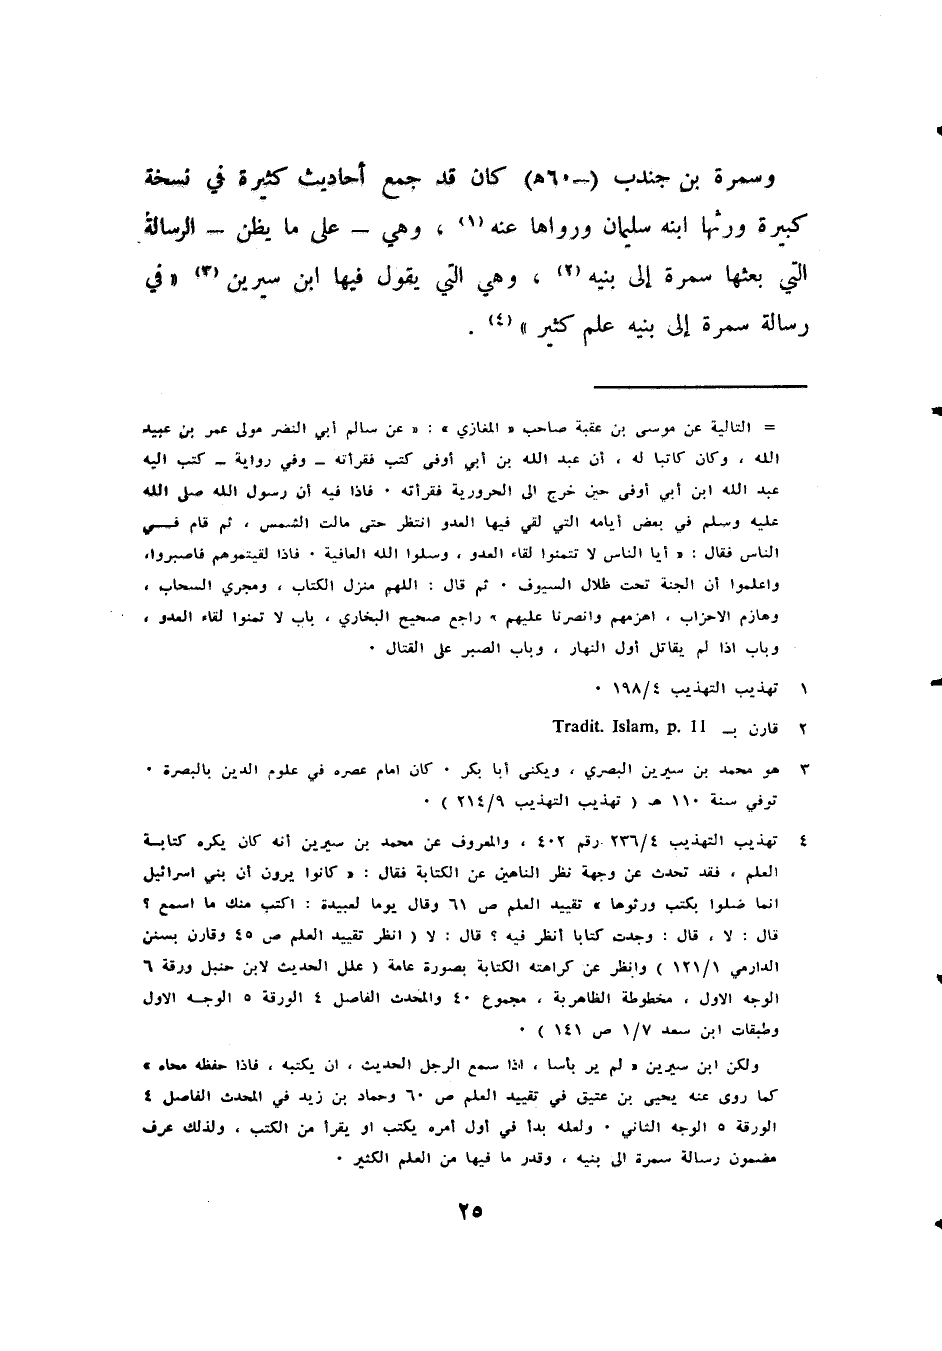 وسمرة بن جندب (–٦٠هـ) كان قد جمع أحاديث كثيرة في نسخة
كبيرة ورثها ابنه سليمان ورواها عنه (١) ، وهي – على ما يظن – الرسالةُ
التي بعثها سمرة إلى بنيه (٢) ، وهي التي يقول فيها ابن سيرين (٣) « في
رسالة سمرة إلى بنيه علم كثير » (٤) .
= التالية عن موسى بن عقبة صاحب « المغازي » : « عن سالم أبي النضر مولى عمر بن عبيد
الله ، وكان كاتبا له ، أن عبد الله بن أبي أوفى كتب فقرأته – وفي رواية – كتب اليه
عبد الله ابن أبي أوفى حين خرج الى الحرورية فقرأته ٠ فاذا فيه أن رسول الله صلى الله
عليه وسلم في بعض أيامه التي لقي فيها العدو انتظر حتى مالت الشمس ، ثم قام فـــي
الناس فقال : « أيا الناس لا تتمنوا لقاء العدو ، وسلوا الله العافية ٠ فاذا لقيتموهم فاصبروا،
واعلموا أن الجنة تحت ظلال السيوف ٠ ثم قال : اللهم منزل الكتاب ، ومجري السحاب ،
وهازم الاحزاب ، اهزمهم وانصرنا عليهم » راجع صحيح البخاري ، باب لا تمنوا لقاء العدو ،
وباب اذا لم يقاتل أول النهار ، وباب الصبر على القتال ٠
١ تهذيب التهذيب ١٩٨/٤ ٠
٢ قارن بـ Tradit. Islam, p. 11
٣ هو محمد بن سيرين البصري ، ويكنى أبا بكر ٠ كان امام عصره في علوم الدين بالبصرة ٠
توفي سنة ١١٠ هـ ( تهذيب التهذيب ٢١٤/٩ ) ٠
٤ تهذيب التهذيب ٢٣٦/٤ رقم ٤٠٢ ، والمعروف عن محمد بن سيرين أنه كان يكره كتابـة
العلم ، فقد تحدث عن وجهة نظر الناهين عن الكتابة فقال : « كانوا يرون أن بني اسرائيل
انما ضلوا بكتب ورثوها » تقييد العلم ص ٦١ وقال يوما لعبيدة : اكتب منك ما اسمع ؟
قال : لا ، قال : وجدت كتابا أنظر فيه ؟ قال : لا ( انظر تقييد العلم ص ٤٥ وقارن بسنن
الدارمي ١٢١/١ ) وانظر عن كراهته الكتابة بصورة عامة ( علل الحديث لابن حنبل ورقة ٦
الوجه الاول ، مخطوطة الظاهرية ، مجموع ٤٠ والمحدث الفاصل ٤ الورقة ٥ الوجـه الاول
وطبقات ابن سعد ١/٧ ص ١٤١ ) ٠
ولكن ابن سيرين « لم ير بأسا ، اذا سمع الرجل الحديث ، ان يكتبه ، فاذا حفظه محاه »
كما روى عنه يحيى بن عتيق في تقييد العلم ص ٦٠ وحماد بن زيد في المحدث الفاصل ٤
الورقة ٥ الوجه الثاني ٠ ولعله بدأ في أول أمره يكتب او يقرأ من الكتب ، ولذلك عرف
مضمون رسالة سمرة الى بنيه ، وقدر ما فيها من العلم الكثير ٠
٢٥